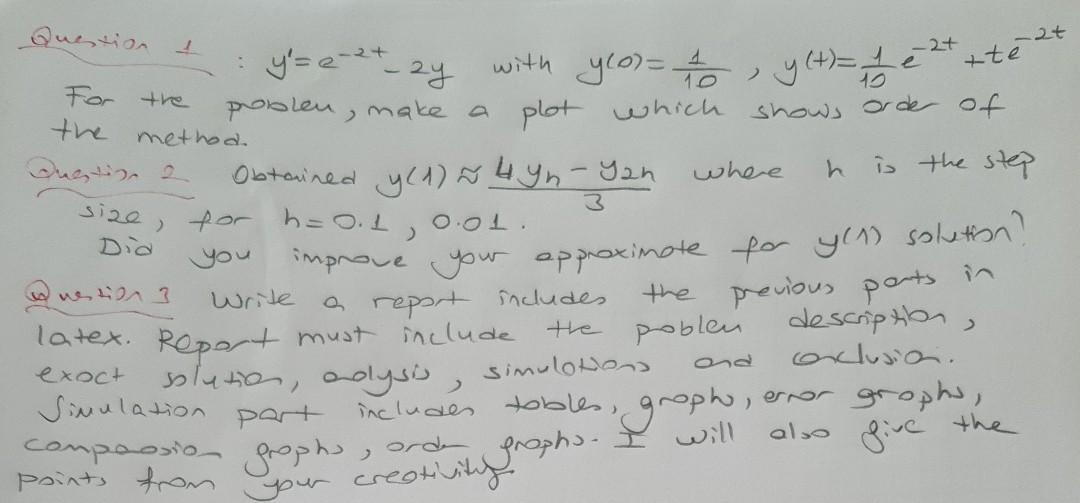 Question 1 : y' = e^{-2t} - 2y with y(0) = 1/10, y(t) = 1/10 e^{-2t} + te^{-2t}
For the problem, make a plot which shows order of
the method.
Question 2 Obtained y(1) ≈ (4y_h - y_{2h})/3 where h is the step
size, for h = 0.1, 0.01.
Did you improve your approximate for y(1) solution?
Question 3 Write a report includes the previous parts in
latex. Report must include the problem description,
exact solution, anlysis, simulations and conclusion.
Simulation part includes tables, graphs, error graphs,
comparasion graphs, order graphs. I will also give the
points from your creativity.